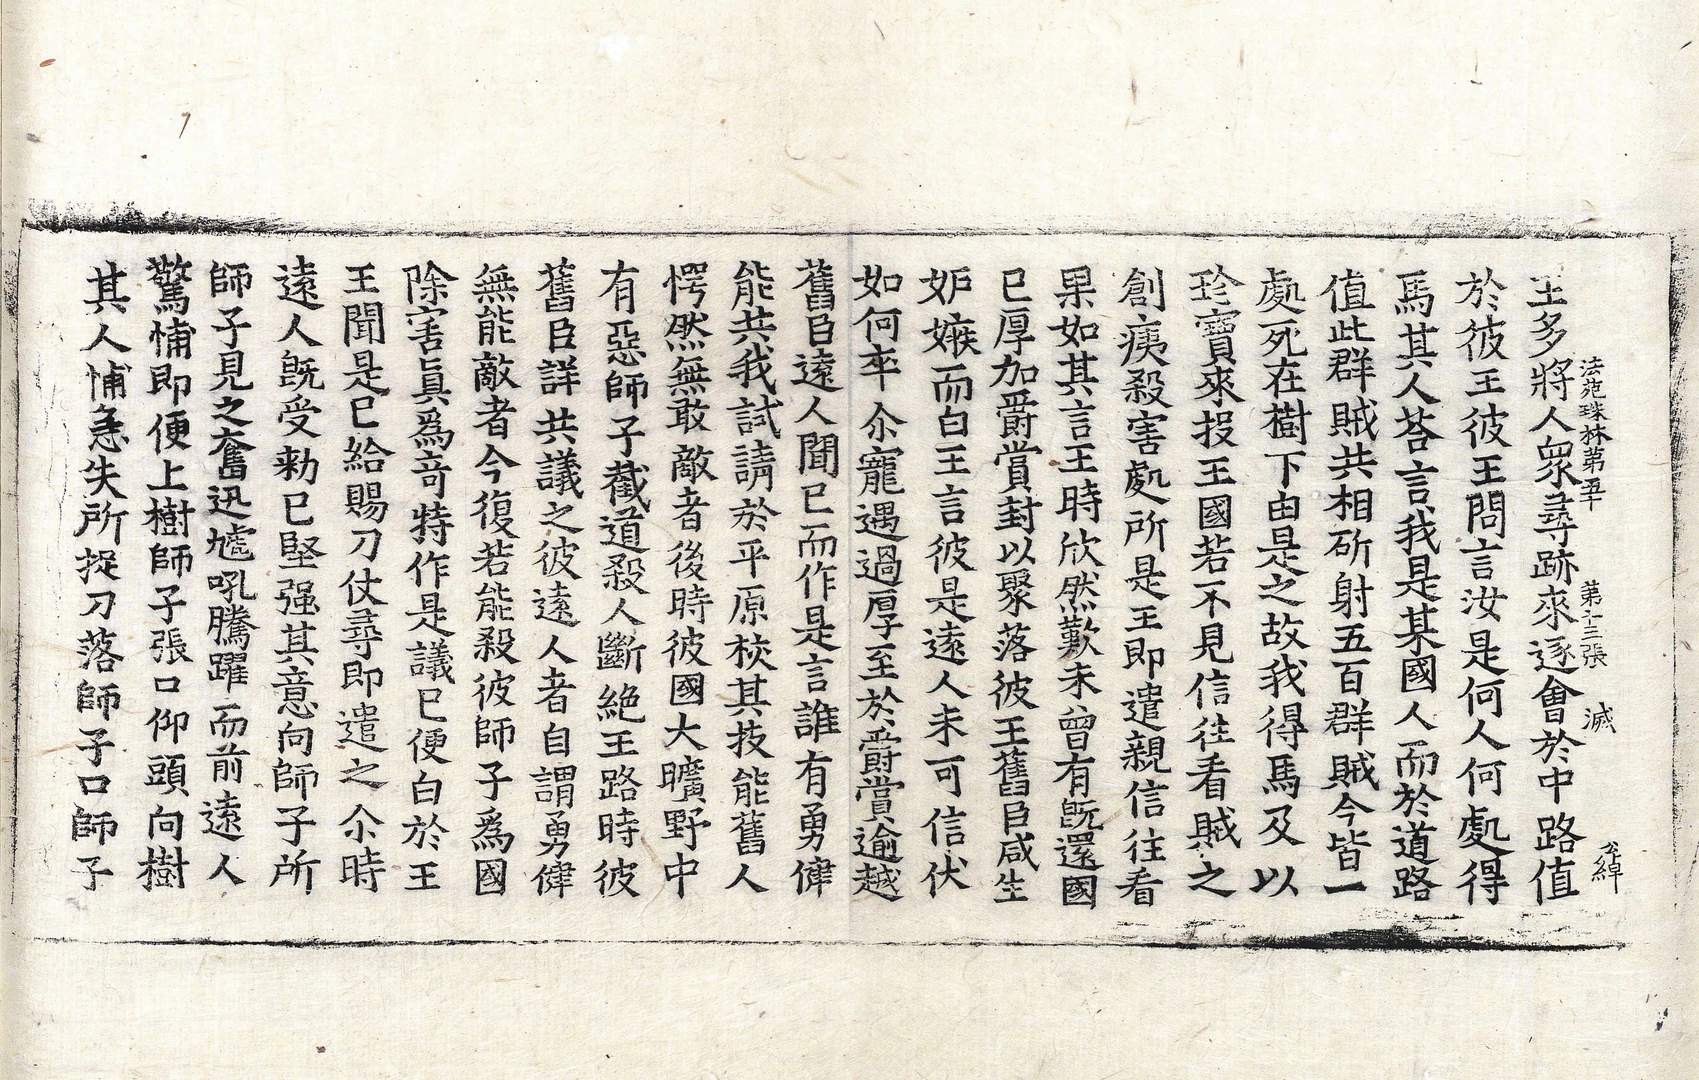 王多將人衆尋跡來逐會於中路值
法苑珠林第五十 第十三張 滅
於彼王彼王問言汝是何人何處得
馬其人荅言我是某國人而於道路
值此群賊共相斫射五百群賊今皆一
處死在樹下由是之故我得馬及以
珎寶來投王國若不見信往看賊之
創痍殺害處所是王即遣親信往看
果如其言王時欣然歎未曾有既還國
已厚加爵賞封以聚落彼王舊臣咸生
妬嫉而白王言彼是遠人未可信伏
如何卒尒寵遇過厚至於爵賞逾越
舊臣遠人聞已而作是言誰有勇健
能共我試請於平原校其技能舊人
愕然無敢敵者後時彼國大曠野中
有惡師子截道殺人斷絶王路時彼
舊臣詳共議之彼遠人者自謂勇健
無能敵者今復若能殺彼師子爲國
除害眞爲竒特作是議已便白於王
王聞是已給賜刀仗尋即遣之尒時
遠人既受勅已堅强其意向師子所
師子見之奮迅㖔吼騰躍而前遠人
驚怖即便上樹師子張口仰頭向樹
其人怖急失所捉刀落師子口師子